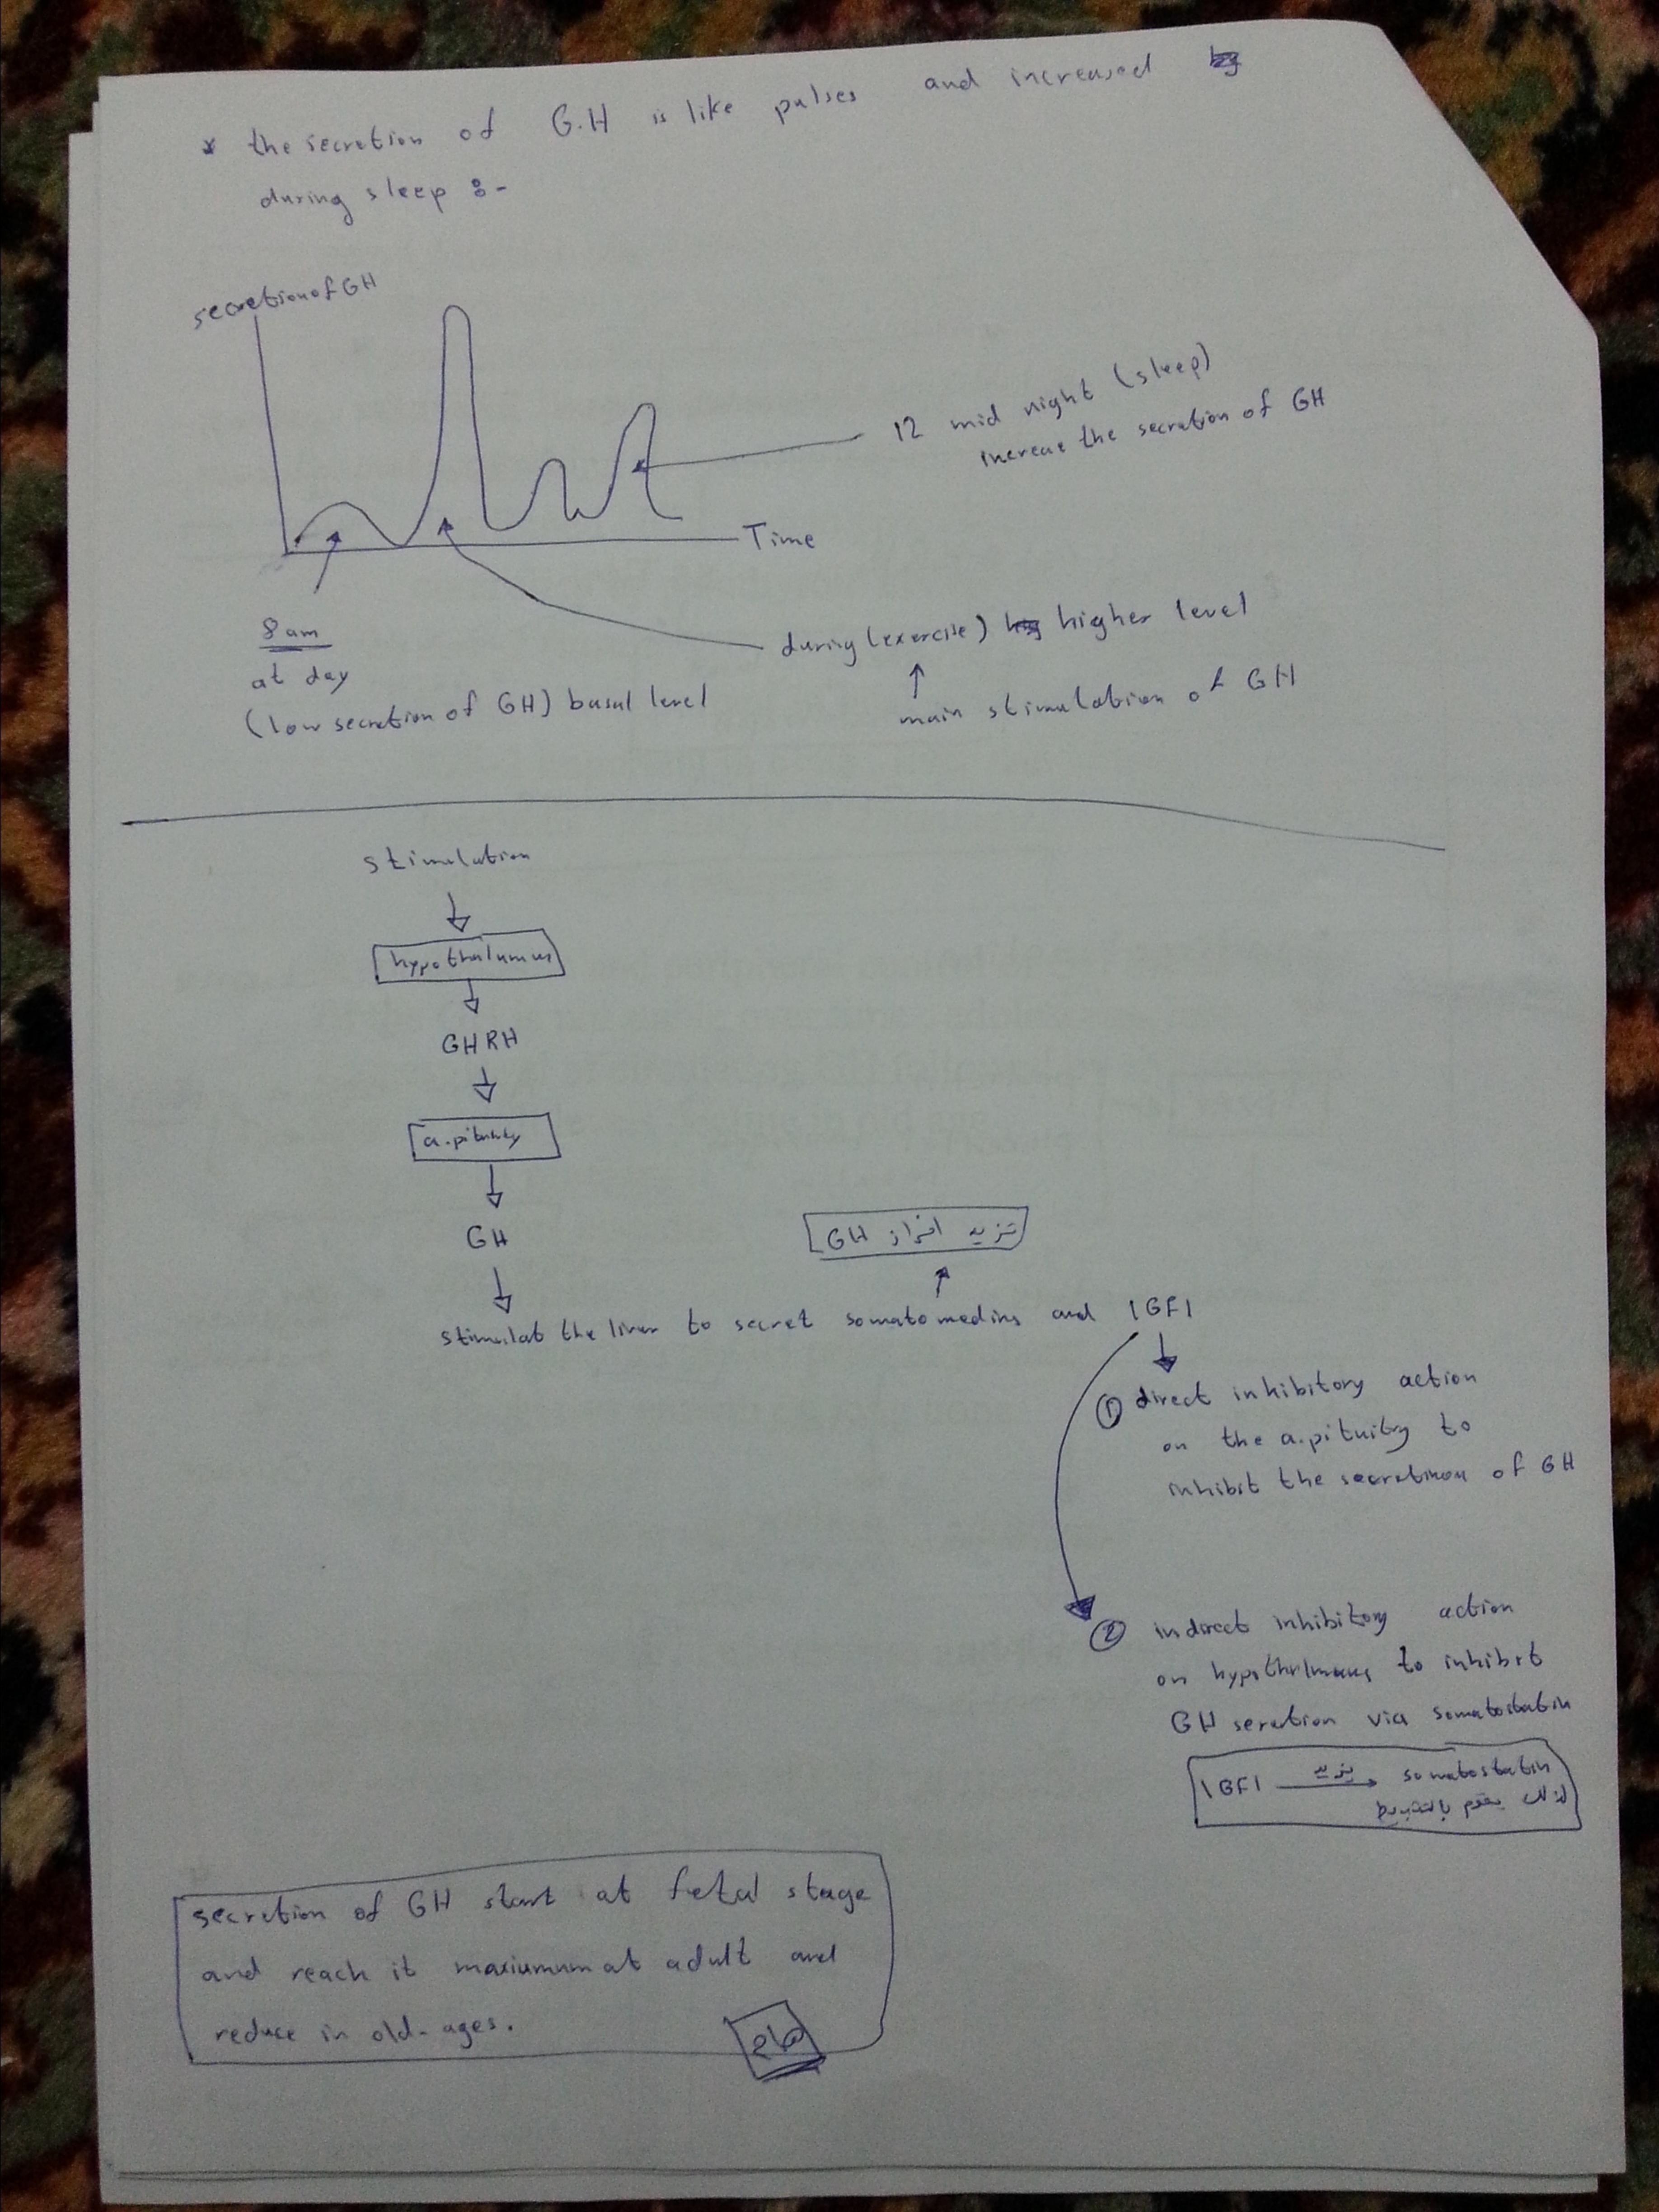 * the secretion of G.H is like pulses and increased
during sleep :-
secretion of GH
12 mid night (sleep)
increae the secretion of GH
Time
8 am
at day
(low secretion of GH) basal level
during (exercise) higher level
main stimulation of GH
stimulation
hypothalumus
GHRH
a.pituitry
GH
تزيد افراز GH
stimulat the liver to secret somatomedins and IGF1
① direct inhibitory action
on the a.pituitry to
inhibit the secretinon of GH
② indirect inhibitory action
on hypothalmus to inhibit
GH seretion via somatostatin
IGF1 يزيد somatostatin
لذلك يقوم بالتثبيط
secretion of GH start at fetal stage
and reach it maxiumum at adult and
reduce in old-ages.